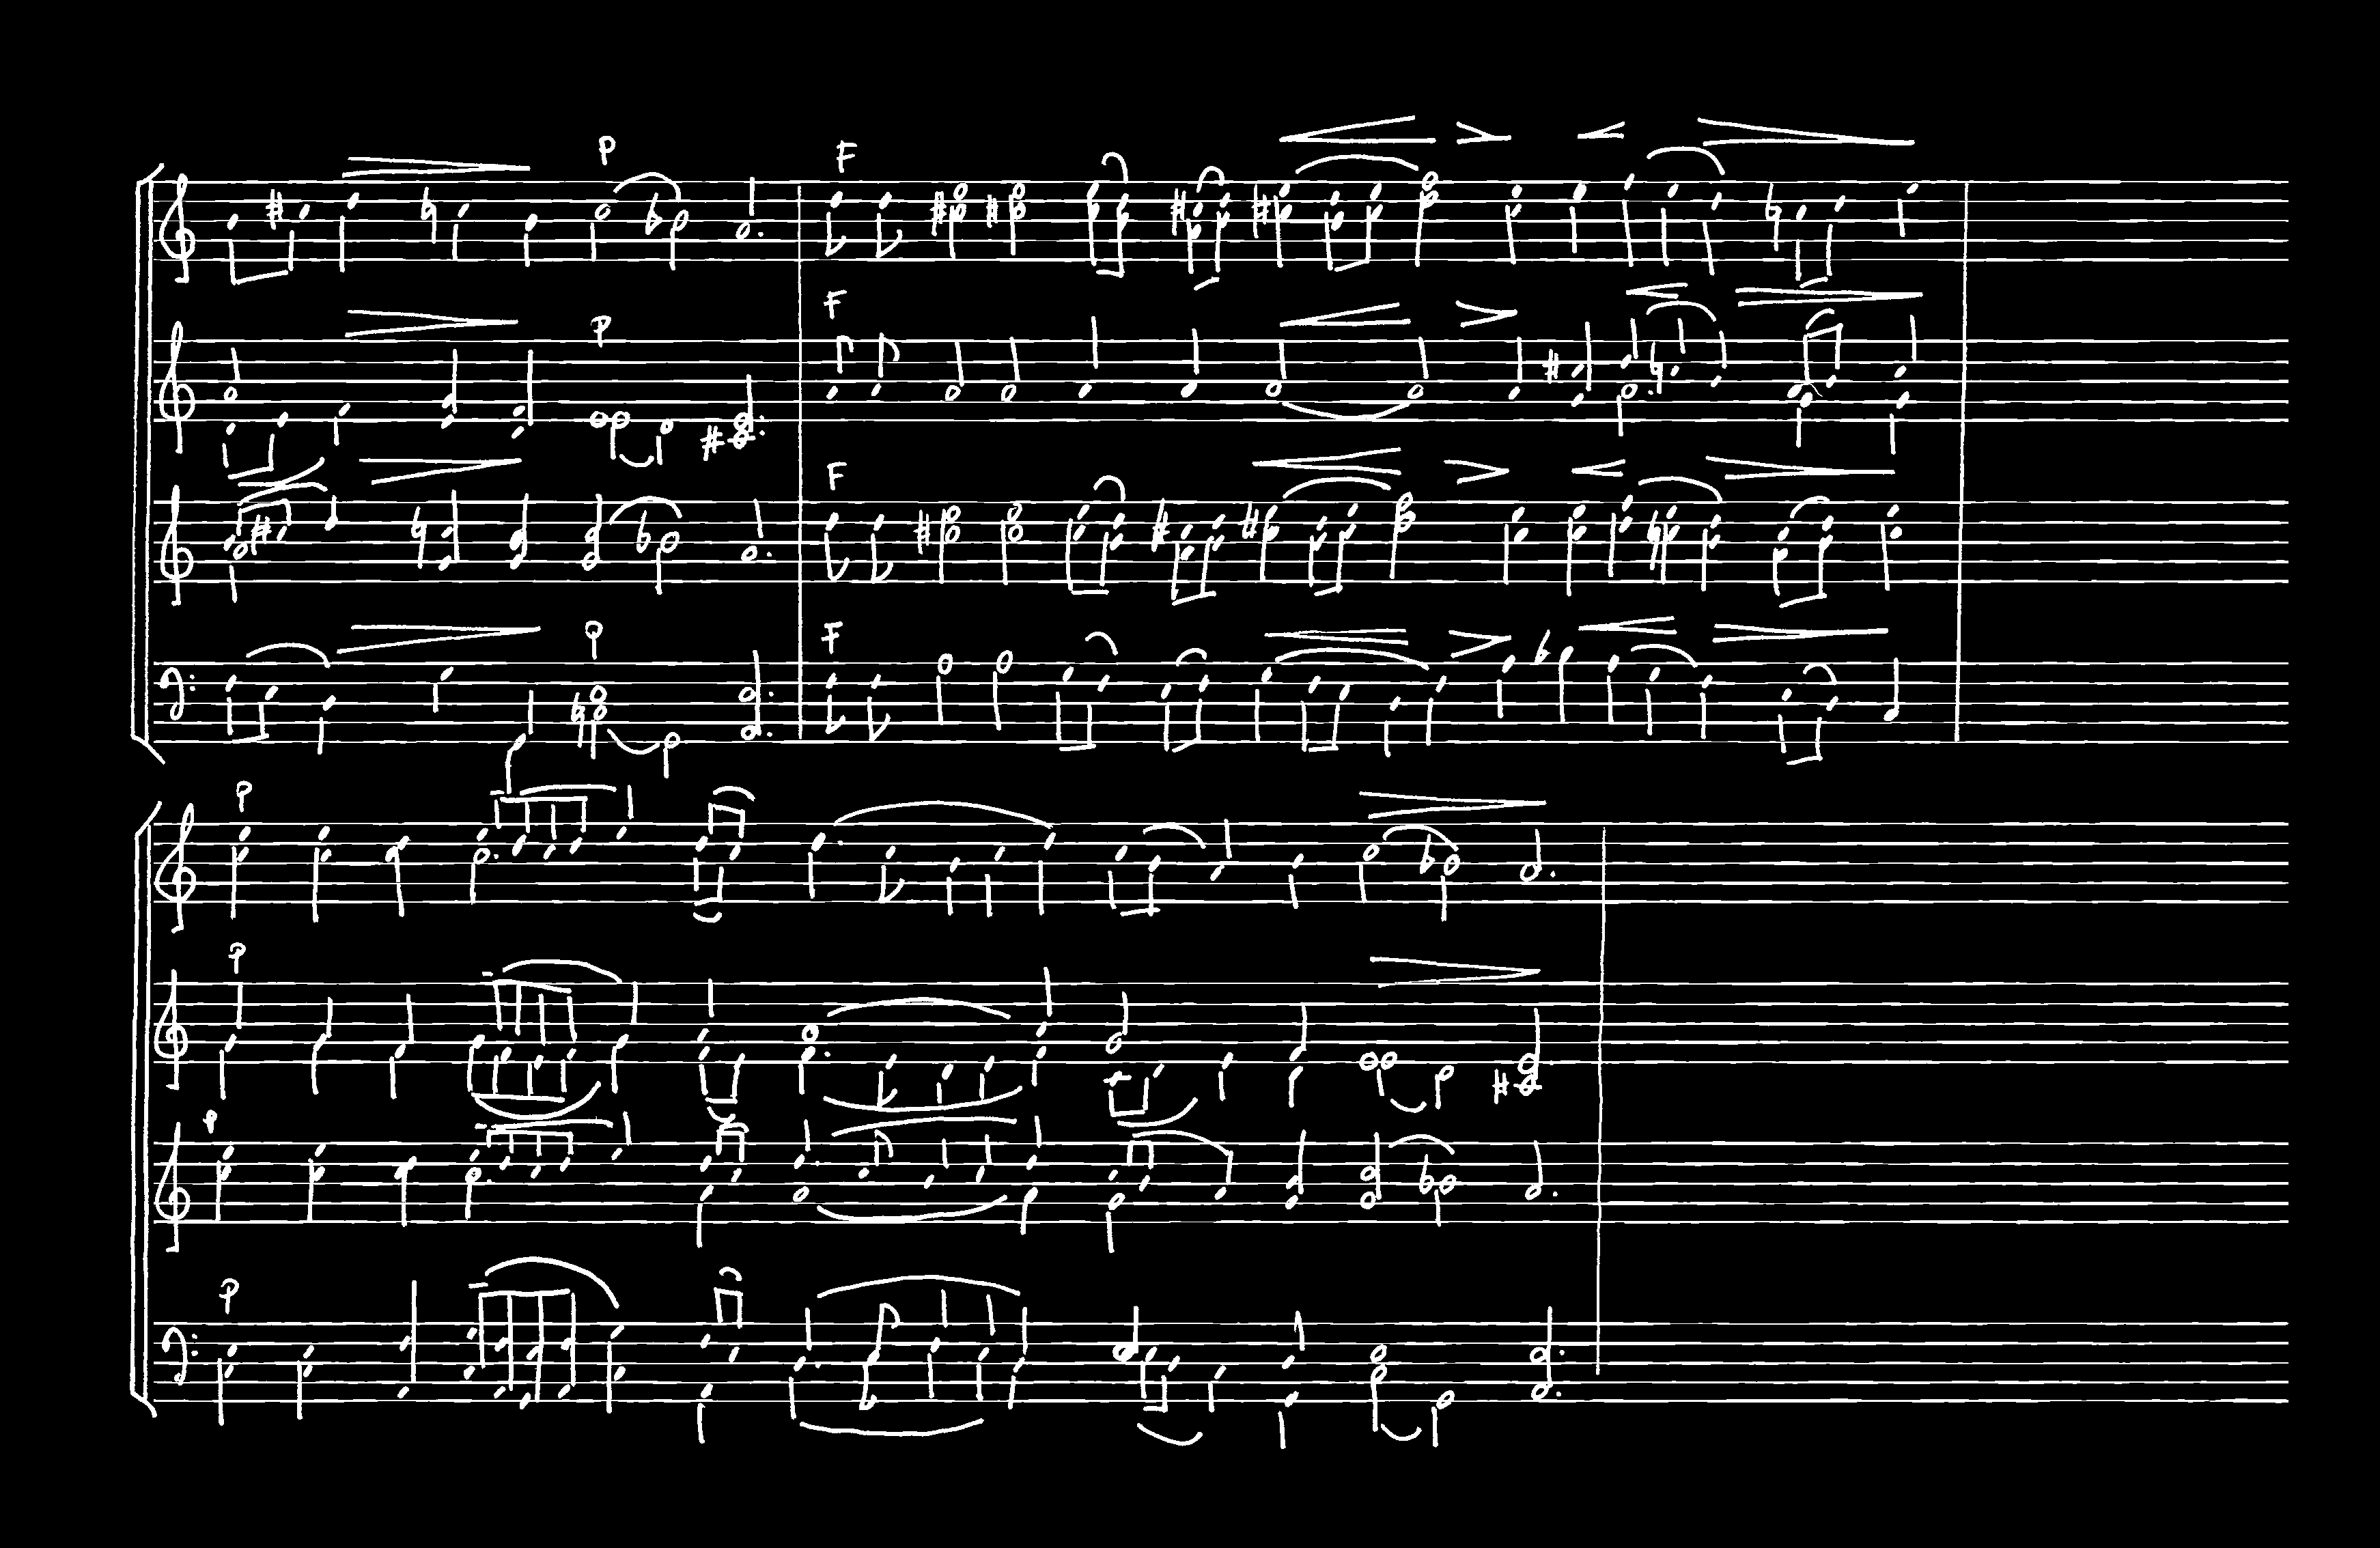 P
F
P
F
F
P
F
P
P
P
P